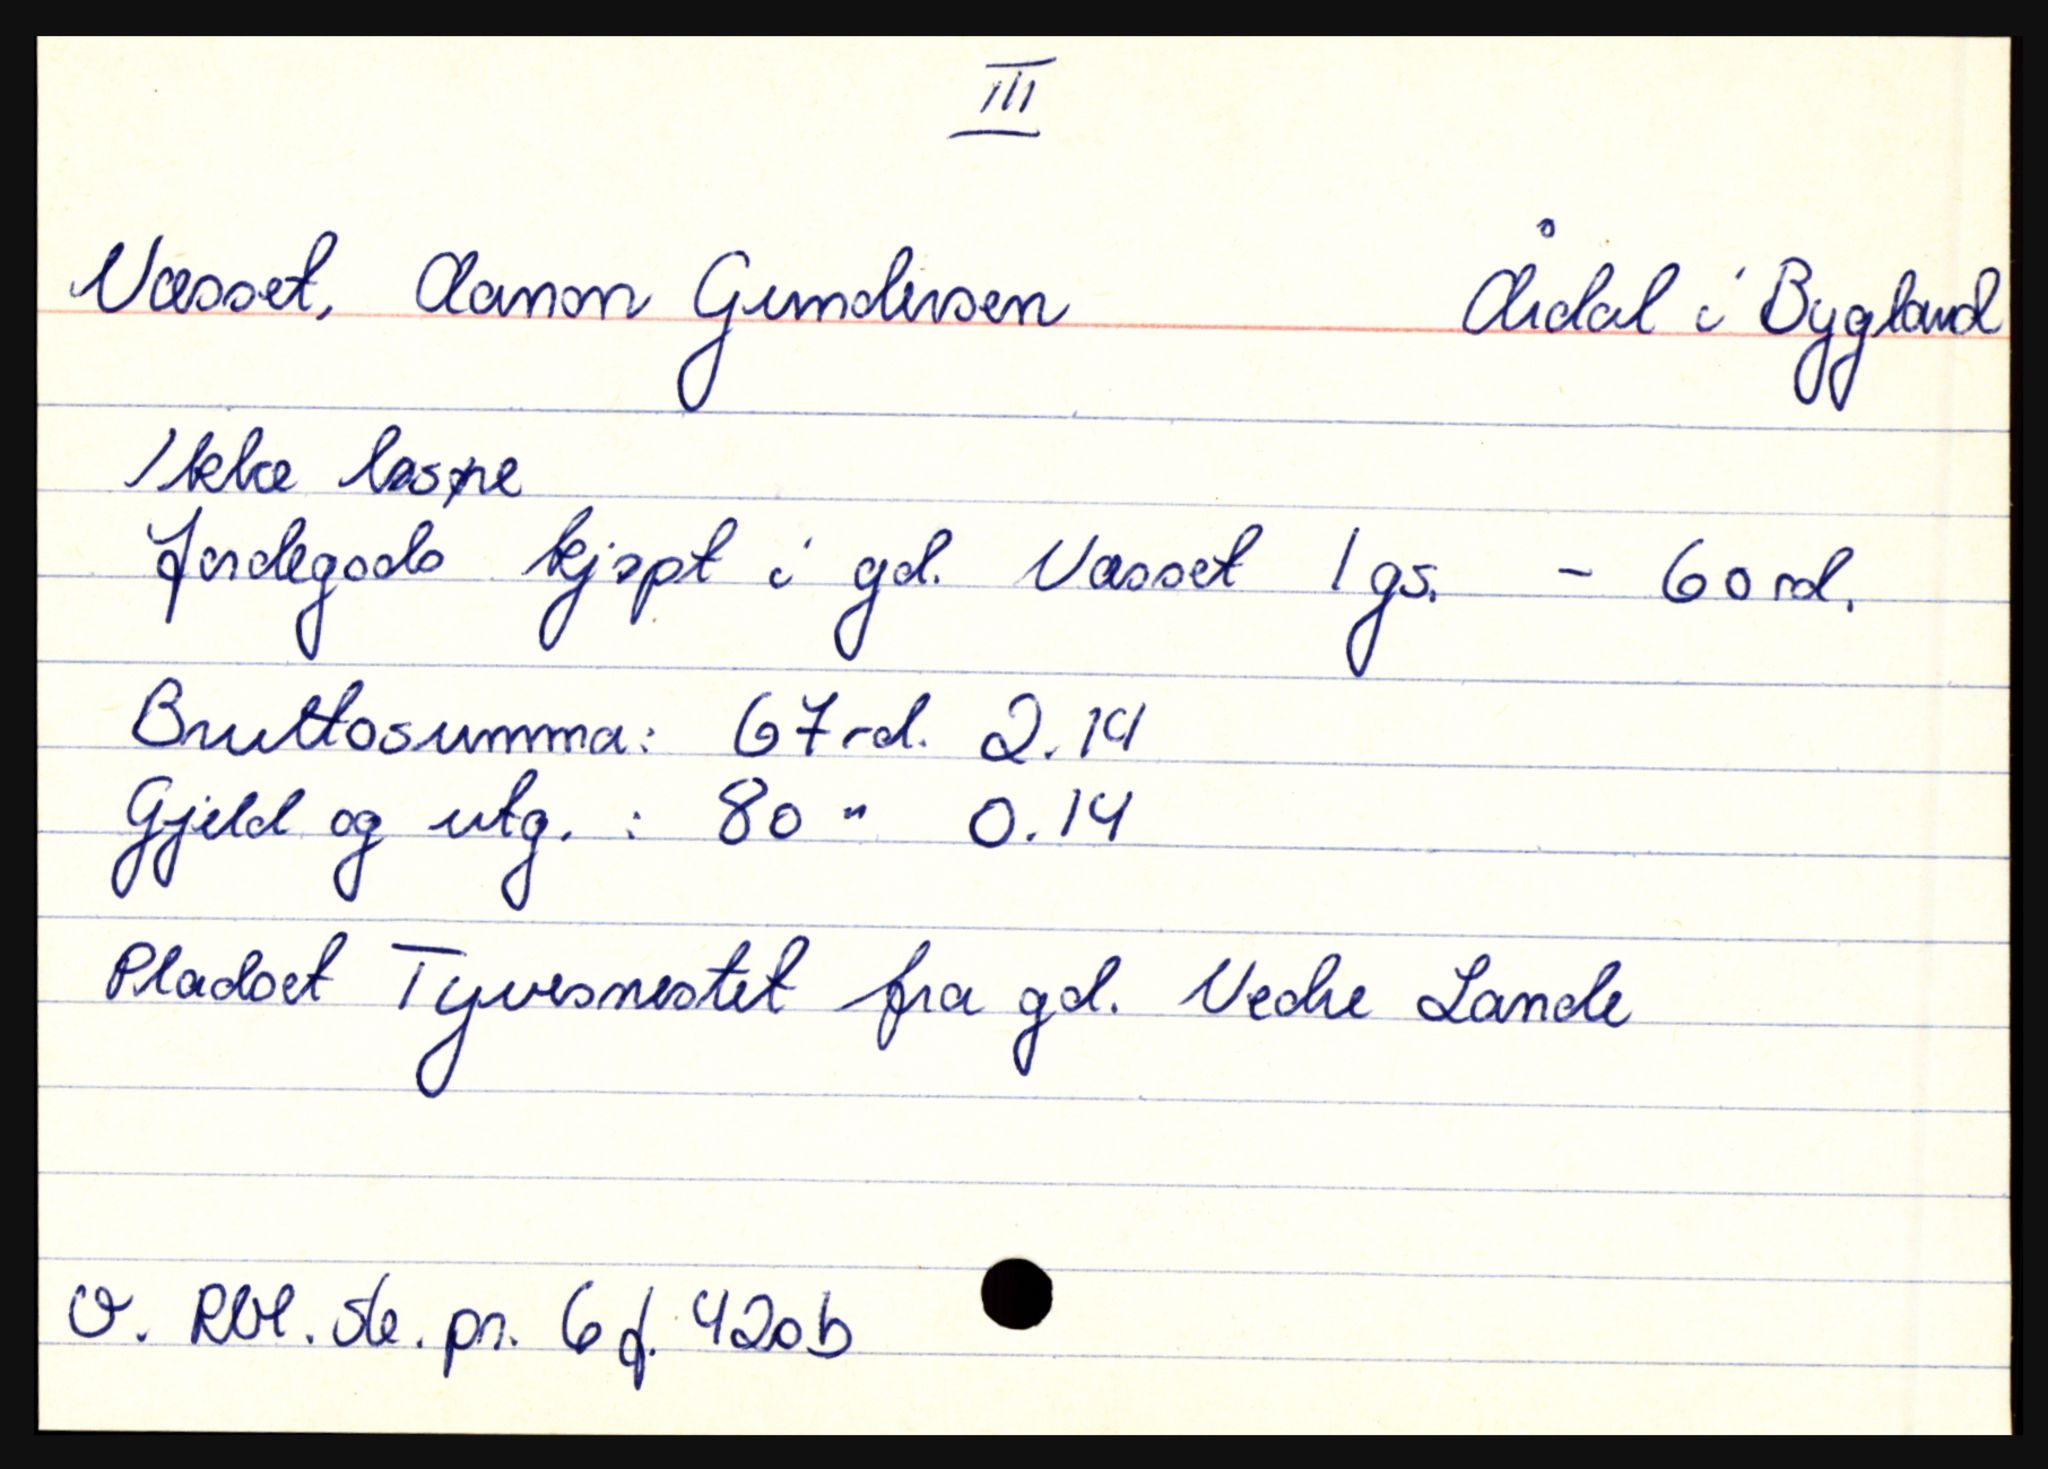 III
Væsset, Aanon Gundersen Årdal i Bygland
Ikke løsøre
Jordegods kjøpt i gd. Væsset 1 gs. - 60 rd.
Bruttosumma: 67 rd. 2.14
Gjeld og utg. : 80 " 0.14
Pladset Tyvesnestet fra gd. Vedre Lande
V. Rbl. sk. pr. 6 f. 420b